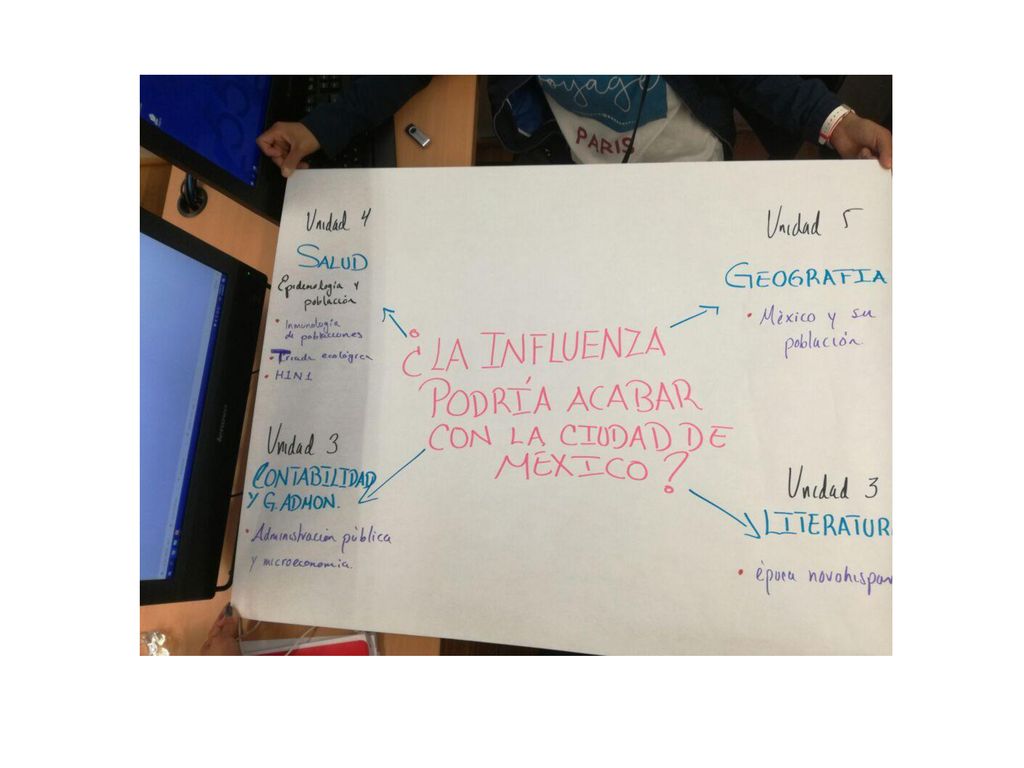 voyage
PARIS
Unidad 4
SALUD
Epidemiología y
población
• Inmunología
de poblaciones
• Triada ecológica
• H1N1
Unidad 5
GEOGRAFIA
• México y su
población.
¿LA INFLUENZA
PODRÍA ACABAR
CON LA CIUDAD DE
MÉXICO?
Unidad 3
CONTABILIDAD
Y G. ADMON.
• Administración pública
y microeconomía.
Unidad 3
LITERATUR
• época novohispan
lenovo